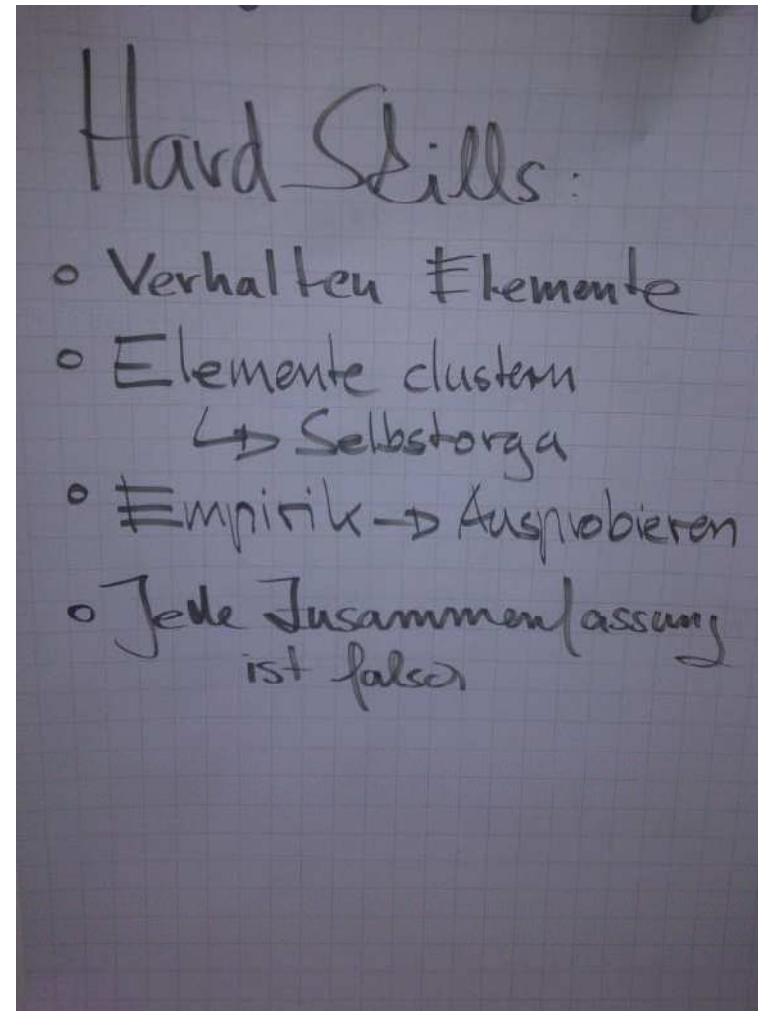 Hard Skills:
o Verhalten Elemente
o Elemente clustern
↳ Selbstorga
o Empirik → Ausprobieren
o Jede Zusammenfassung
ist falsch